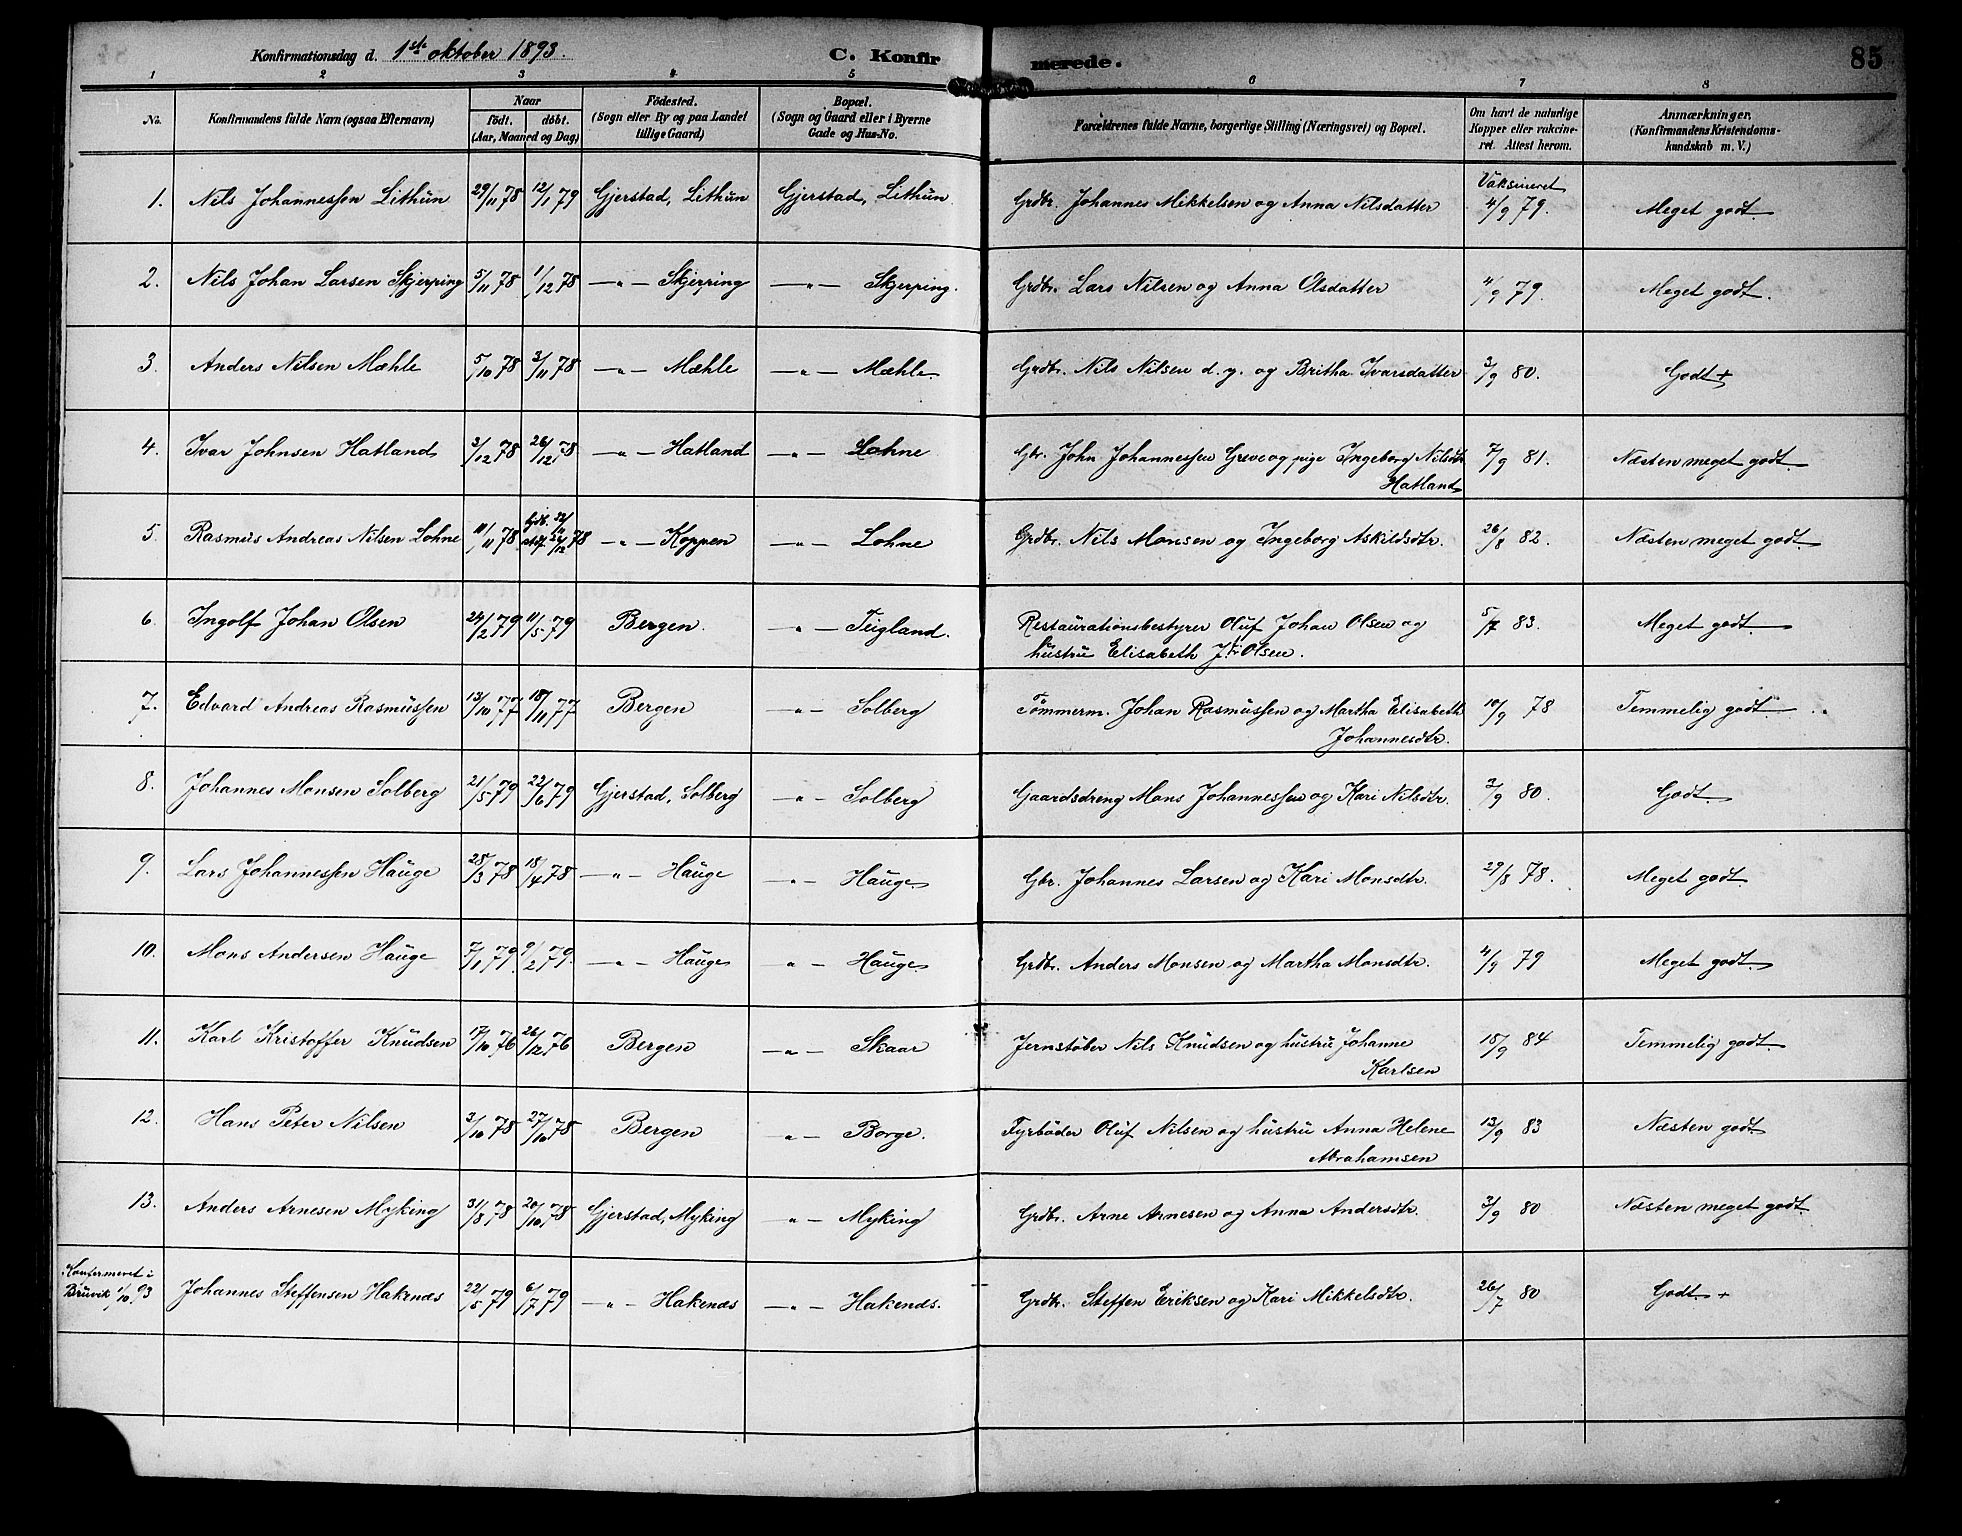 Konfirmationsdag d. 1ste oktober 1893.
C. Konfirmerede.
85
1 2 3 4 5 6 7 8
No. Konfirmandens fulde Navn (ogsaa Efternavn) Naar født. døbt. (Aar, Maaned og Dag) Fødested. (Sogn eller By og paa Landet tillige Gaard) Bopæl. (Sogn og Gaard eller i Byerne Gade og Hus-No. Forældrenes fulde Navne, borgerlige Stilling (Næringsvei) og Bopæl. Om havt de naturlige Kopper eller vakcineret. Attest herom. Anmærkninger. (Konfirmandens Kristendomskundskab m. V.)
1. Nils Johannessen Lithun 29/11 78 12/1 79 Gjerstad, Lithun Gjerstad, Lithun. Grdbr. Johannes Mikkelsen og Anna Nilsdatter Vaksineret 4/9 79. Meget godt.
2. Nils Johan Larsen Skjerping 5/11 78 1/12 78 —„— Skjerping —„— Skjerping. Grdbr. Lars Nilsen og Anna Olsdatter 4/9 79. Meget godt.
3. Anders Nilsen Mæhle 5/10 78 3/11 78 —„— Mæhle —„— Mæhle. Grdbr. Nils Nilsen d. y. og Britha Ivarsdatter 3/9 80. Godt +
4. Ivar Johnsen Hatland 3/12 78 26/12 78 —„— Hatland —„— Lohne Gbr. John Johannessen Greve og pige Ingeborg Nilsdtr. 7/9 81. Næsten meget godt.
Hatland
5. Rasmus Andreas Nilsen Lohne 11/11 78 Hjdb. 22/11 stdf. 26/12 78 —„— Koppen —„— Lohne Grdbr. Nils Monsen og Ingeborg Askildsdtr. 26/8 82. Næsten meget godt.
6. Ingolf Johan Olsen 24/2 79 11/5 79 Bergen. —„— Teigland. Restaurationsbestyrer Oluf Johan Olsen og 5/7 83. Meget godt.
hustru Elisabeth Olsen.
7. Edvard Andreas Rasmussen 13/10 77 18/11 77 Bergen —„— Solberg Tømmerm. Johan Rasmussen og Martha Elisabeth 10/9 78 Temmelig godt.
Johannesdtr.
8. Johannes Monsen Solberg 21/5 79 22/6 79 Gjerstad, Solberg —„— Solberg Gaardsdreng Mons Johannessen og Kari Nilsdtr. 3/9 80. Godt.
9. Lars Johannessen Hauge 25/3 78 18/4 78 —„— Hauge —„— Hauge Gbr. Johannes Larsen og Kari Monsdtr. 29/8 78. Meget godt.
10. Mons Andersen Hauge 7/1 79. 9/2 79. —„— Hauge —„— Hauge Grdbr. Anders Monsen og Martha Monsdtr. 4/9 79 Meget godt.
11. Karl Kristoffer Knudsen 17/10 76 26/12 76 Bergen —„— Skaar Jernstøber Nils Knudsen og hustru Johanne 18/9 84 Temmelig godt.
Karlsen
12. Hans Peter Nilsen 3/10 78 27/10 78 Bergen —„— Borge. Fyrbøder Oluf Nilsen og hustru Anna Helene 13/9 83 Næsten godt
Abrahamsen
13. Anders Arnesen Myking 31/8 78 20/10 78 Gjerstad, Myking —„— Myking Grdbr. Arne Arnesen og Anna Andersdtr. 3/9 80 Næsten meget godt.
Konfermeret i
Bruvik 1/10 93 Johannes Steffensen Hakenæs 22/5 79 6/7 79 —„— Hakenæs —„— Hakenæs. Grdbr. Steffen Eriksen og Kari Mikkelsdtr. 26/7 80 Godt. +